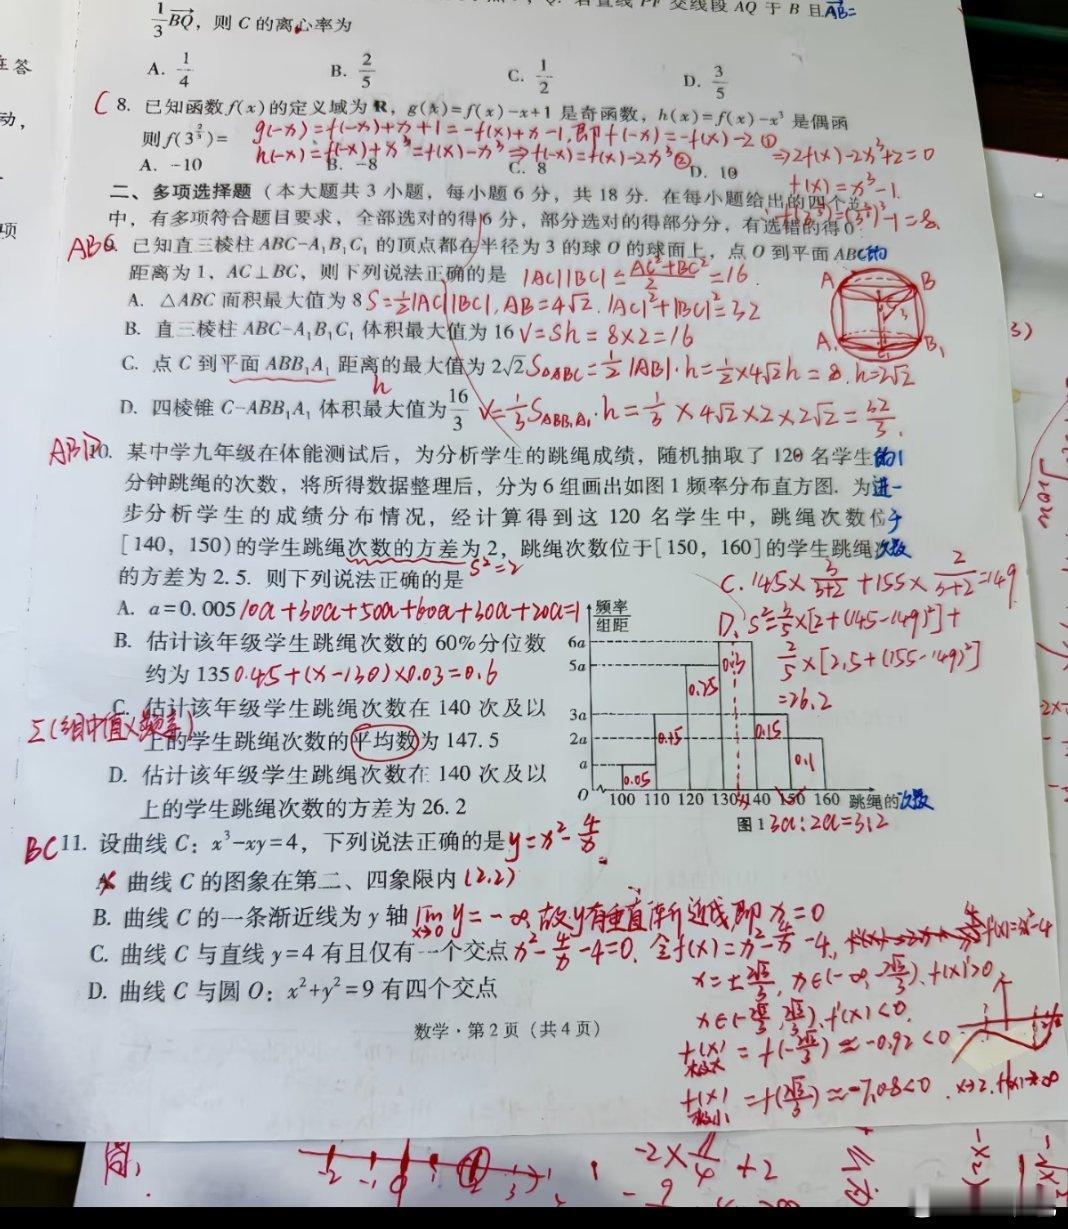 1/3 BQ，则 C 的离心率为
A. 1/4 B. 2/5 C. 1/2 D. 3/5
C 8. 已知函数f(x)的定义域为R，g(x)=f(x)-x+1 是奇函数，h(x)=f(x)-x³ 是偶函
则f(3^(2/3))=
g(-x)=f(-x)+x+1=-f(x)+x-1,即f(-x)=-f(x)-2 ①
h(-x)=f(-x)+x³=f(x)-x³⇒f(-x)=f(x)-2x³②
⇒2f(x)-2x³+2=0
f(x)=x³-1.
A. -10 B. -8 C. 8 D. 10
二、多项选择题（本大题共 3 小题，每小题 6 分，共 18 分．在每小题给出的四个选
中，有多项符合题目要求，全部选对的得 6 分，部分选对的得部分分，有选错的得0
AB 9. 已知直三棱柱 ABC-A₁B₁C₁ 的顶点都在半径为 3 的球 O 的球面上，点 O 到平面 ABC的
距离为 1，AC⊥BC，则下列说法正确的是 |AC||BC|≤(AC²+BC²)/2=16.
A. △ABC 面积最大值为 8 S=½|AC||BC|, AB=4√2. |AC|²+|BC|²=32
B. 直三棱柱 ABC-A₁B₁C₁ 体积最大值为 16 V=Sh=8×2=16
C. 点 C 到平面 ABB₁A₁ 距离的最大值为 2√2 S△ABC=½|AB|·h=½×4√2h=8. h=2√2
h
D. 四棱锥 C-ABB₁A₁ 体积最大值为 16/3 V=⅓S_ABB₁A₁·h=⅓×4√2×2×2√2=32/3.
A B
A₁ B₁
ABD 10. 某中学九年级在体能测试后，为分析学生的跳绳成绩，随机抽取了 120 名学生的1
分钟跳绳的次数，将所得数据整理后，分为 6 组画出如图 1 频率分布直方图．为进一
步分析学生的成绩分布情况，经计算得到这 120 名学生中，跳绳次数位于
[140，150)的学生跳绳次数的方差为 2，跳绳次数位于[150，160]的学生跳绳次数
的方差为 2.5．则下列说法正确的是 S²=2
C. 145×3/(3+2)+155×2/(3+2)=149
A. a=0.005 10a+30a+50a+60a+30a+20a=1
D. S²=3/5×[2+(145-149)²]+
2/5×[2.5+(155-149)²]
=26.2
B. 估计该年级学生跳绳次数的 60%分位数
约为 135 0.45+(x-130)×0.03=0.6
C. 估计该年级学生跳绳次数在 140 次及以
上的学生跳绳次数的平均数为 147.5
D. 估计该年级学生跳绳次数在 140 次及以
上的学生跳绳次数的方差为 26.2
频率
组距
6a
5a
3a
2a
a
0.05 0.15 0.25 0.3 0.15 0.1
O 100 110 120 130 140 150 160 跳绳的次数
图 1 3a:2a=3:2
BC 11. 设曲线 C：x³-xy=4，下列说法正确的是 y=x²-4/x.
A. 曲线 C 的图象在第二、四象限内 (2.2)
B. 曲线 C 的一条渐近线为 y 轴 lim x→0 y=-∞,故y有垂直渐近线即x=0
C. 曲线 C 与直线 y=4 有且仅有一个交点 x²-4/x-4=0. 令f(x)=x²-4/x-4,
D. 曲线 C 与圆 O：x²+y²=9 有四个交点
x=±2√3/3, x∈(-∞,-2√3/3), f'(x)>0
x∈(-2√3/3,2√3/3), f'(x)<0.
f(x)极大=f(-2√3/3)≈-0.92<0
f(x)极小=f(2√3/3)≈-7.08<0
数学·第 2 页（共 4 页）
-2 -1 0 2 3